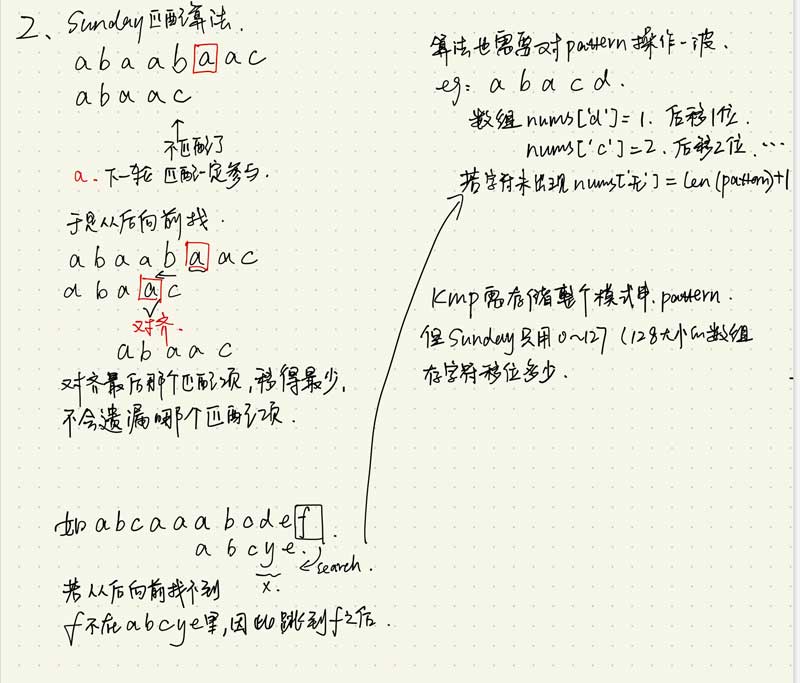 2、Sunday匹配算法.
a b a a b a a c
a b a a c
不匹配了
a. 下一轮 匹配一定参与.
于是从后向前找.
a b a a b a a c
a b a a c
对齐.
a b a a c
对齐最后那个匹配项,移得最少,
不会遗漏哪个匹配项.
如 a b c a a a b c d e f .
a b c y e .
search .
x.
若从后向前找不到
f不在abcye里,因此跳到f之后.
算法也需要对pattern操作一波.
eg: a b a c d .
数组 nums['d']=1. 后移1位.
nums['c']=2. 后移2位. …
若字符未出现 nums['无']=len(pattern)+1
Kmp需存储整个模式串.pattern.
但Sunday只用0~127 (128大小的数组
存字符移位多少.